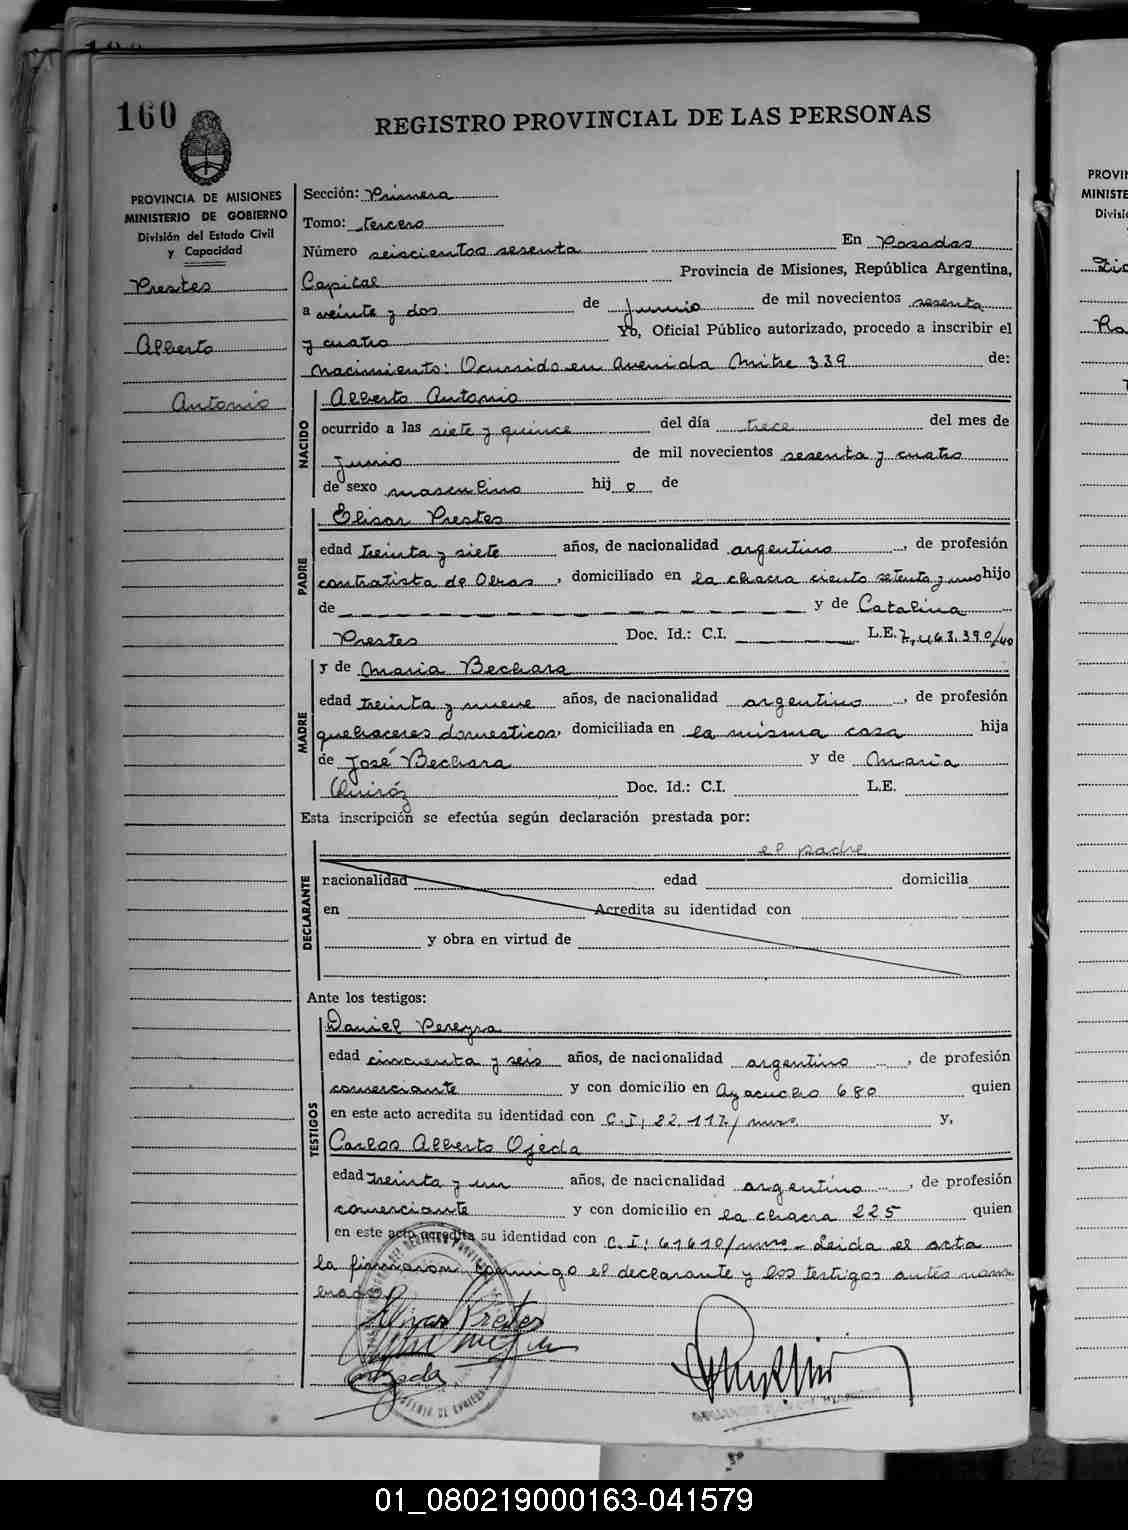 160
REGISTRO PROVINCIAL DE LAS PERSONAS
PROVINCIA DE MISIONES
MINISTERIO DE GOBIERNO
División del Estado Civil
y Capacidad
Prestes
Alberto
Antonio
Sección: Primera
Tomo: tercero
Número seiscientos sesenta En Posadas
Capital Provincia de Misiones, República Argentina,
a veinte y dos de Junio de mil novecientos sesenta
y cuatro Yo, Oficial Público autorizado, procedo a inscribir el
nacimiento: Ocurrido en Avenida Mitre 339 de:
NACIDO
Alberto Antonio
ocurrido a las siete y quince del día trece del mes de
Junio de mil novecientos sesenta y cuatro
de sexo masculino hij o de
PADRE
Elisar Prestes
edad treinta y siete años, de nacionalidad argentino, de profesión
contratista de Obras, domiciliado en la chacra ciento setenta y uno hijo
de y de Catalina
Prestes Doc. Id.: C.I. L.E. 7.463.390/40
MADRE
y de Maria Bechara
edad treinta y nueve años, de nacionalidad argentino, de profesión
quehaceres domesticos, domiciliada en la misma casa hija
de José Bechara y de Maria
Quiróz Doc. Id.: C.I. L.E.
Esta inscripción se efectúa según declaración prestada por:
DECLARANTE
el padre
nacionalidad edad domicilia
en Acredita su identidad con
y obra en virtud de
Ante los testigos:
TESTIGOS
Daniel Pereyra
edad cincuenta y seis años, de nacionalidad argentino, de profesión
comerciante y con domicilio en Ayacucho 680 quien
en este acto acredita su identidad con C.I; 22.117/mnes. y,
Carlos Alberto Ojeda
edad treinta y un años, de nacionalidad argentino, de profesión
comerciante y con domicilio en la chacra 225 quien
en este acto acredita su identidad con C.I; 61610/mnes - Leida el acta
la firmaron conmigo el declarante y los testigos antes nom
brados
Elisar Prestes
PROVI
MINISTE
Divisi
01_080219000163-041579